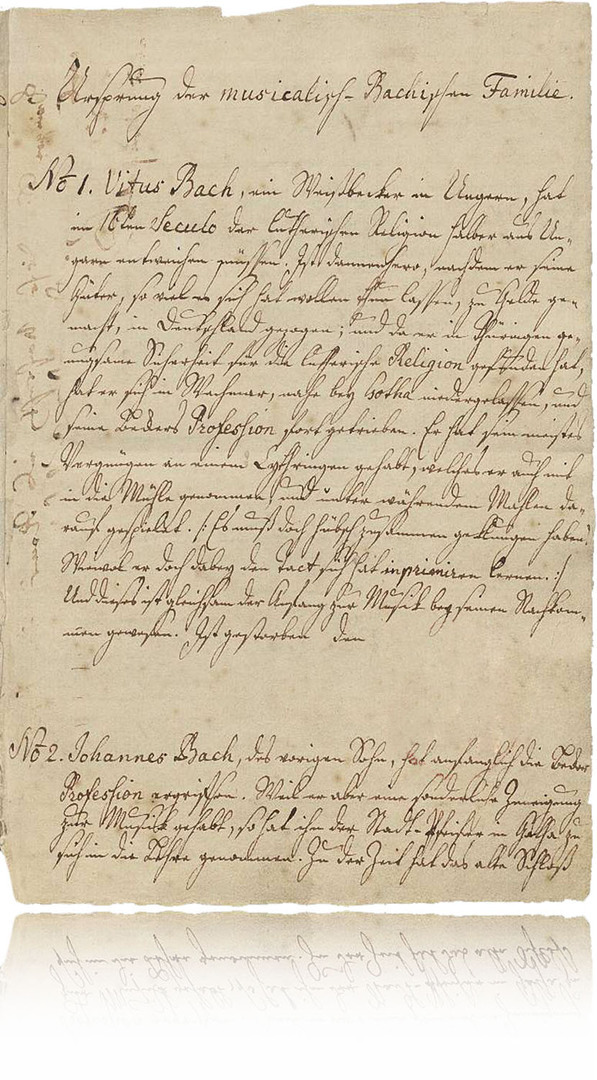 Ursprung der musicalisch-Bachischen Familie.
No 1. Vitus Bach, ein Weißbecker in Ungern, hat
im 16ten Seculo der lutherischen Religion halber aus Un-
garn entweichen müssen. Ist dannenhero, nachdem er seine
Güter, so viel es sich hat wollen thun lassen, zu Gelde ge-
macht, in Deutschland gezogen; und da er in Thüringen ge-
nugsame Sicherheit für die lutherische Religion gefunden hat,
hat er sich in Wechmar, nahe bey Gotha niedergelassen, und
seine Beckers Profession fortgetrieben. Er hat sein meistes
Vergnügen an einem Cythringen gehabt, welches er auch mit
in die Mühle genommen, und unter währendem Mahlen da-
rauf gespielet. /: Es muß doch hübsch zusammen geklungen haben!
Wiewol er doch dabey den Tact sich hat inprimiren lernen. :/
Und dieses ist gleichsam der Anfang zur Musik bey seinen Nachkom-
men gewesen. Ist gestorben den
No 2. Johannes Bach, des vorigen Sohn, hat anfänglich die Becker
Profession ergriffen. Weil er aber eine sonderliche Zuneigung
zur Musik gehabt, so hat ihn der Stadt-Pfeiffer in Gotha zu
sich in die Lehre genommen. Zu der Zeit hat das alte Schloß